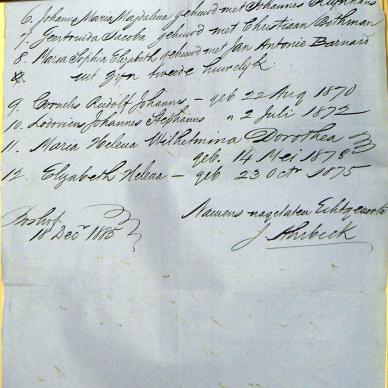 6. Johanna Maria Magdalena gehuwd met Johannes
7. Geertruida Jacoba gehuwd met Christiaan Bothman
8. Maria Sophia Elizabeth gehuwd met Jan Antonie Barnard
uit zijn tweede huwelijk:
9. Cornelis Rudolf Johannes – geb 22 Aug 1870
10. Lodovicus Johannes Stephanus " 2 Juli 1872
11. Maria Helena Wilhelmina Dorothea
geb. 14 Mei 1878
12. Elizabeth Helena – geb 23 Octr 1875
Boshof
18 Decr 1885
Namens nagelaten Echtgenoote
J.